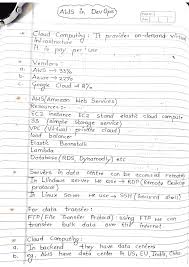 AWS in DevOps
Cloud Computing : It provides on-demand virtual
infrastructure
It is pay per use
Vendors :
a. AWS → 33%
b. Azure → 22%
c. Google Cloud → 8%
AWS (Amazon Web Services)
Resources :-
EC2 instance EC2 stand elastic cloud compute
S3 (simple storage service)
VPC (Virtual private cloud)
load balancer
Elastic Beanstalk
Lambda
Database (RDS, Dynamodb) etc
Servers in data centre can be accessed remotely
In Windows server we use → RDP (Remote Desktop
protocol)
In Linux Server we use → SSH (Secured shell)
For data transfer :
FTP (File Transfer Protocol) : using FTP we can
transfer bulk data over the internet
Cloud computing :
a. In backend they have data centers
b. eg. AWS have data center in US, EU, India,